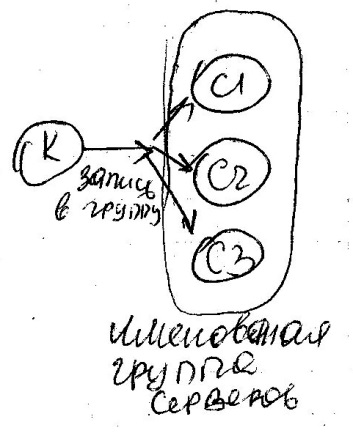 С1
К
С2
запись
в группу
С3
именованная
группа
серверов